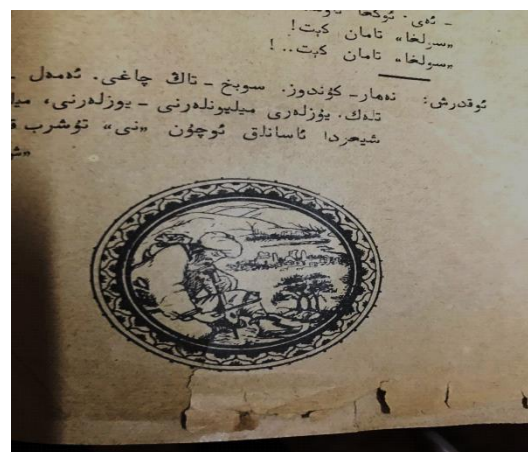 - ئەي. ئوڭغا
„سولغا“ تامان كېت!
„سولغا“ تامان كېت..!
ئوقدرش: نەھار- كۇندوز. سوبخ - تاڭ چاغى. ئەمەل -
تلەك. يۇزلەرى مېليونلەرنى - يوزلەرنى، ميل
شيعردا ئاسانلق ئوچۇن „نى“ تۇشرب ق